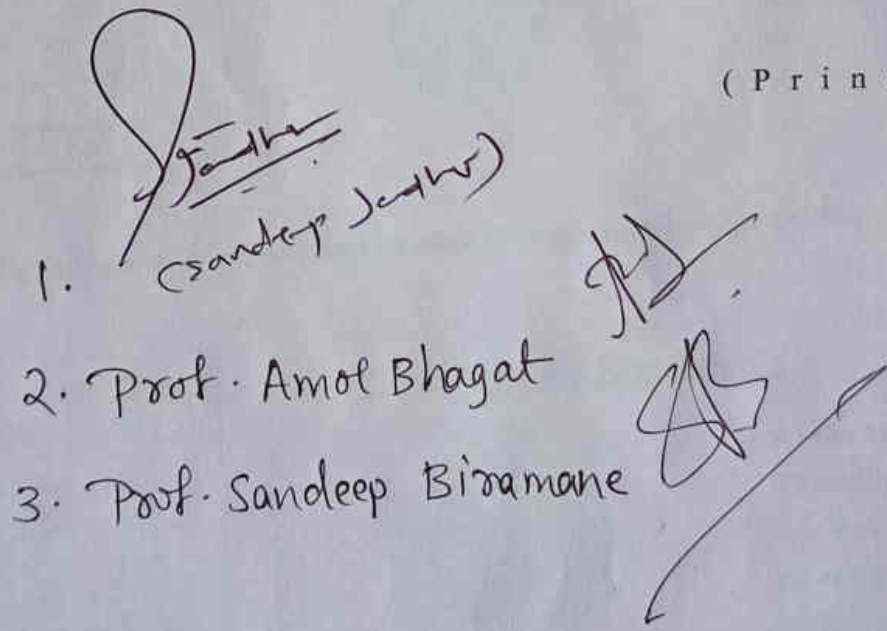 ( P r i n
Jadhav
1. (Sandeep Jadhav)
2. Prof. Amol Bhagat
3. Prof. Sandeep Biramane